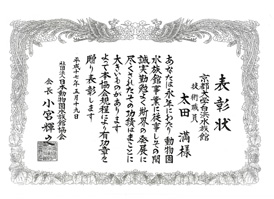 表彰状
京都大学白浜水族館
技術職員
太田 満 様
あなたは永年にわたり動物園
水族館事業に従事しその間
誠実勤勉よく斯界の発展に
尽くされたその功績はまことに
大きいものがあります
よって本協会規程により有功章を
贈り表彰します
平成十七年五月十九日
社団法人日本動物園水族館協会
会長 小宮輝之